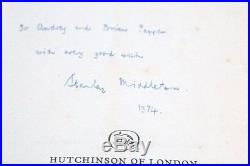 To Audrey and Brian Tapper
with every good wish
Stanley Middleton
1974.
HUTCHINSON OF LONDON